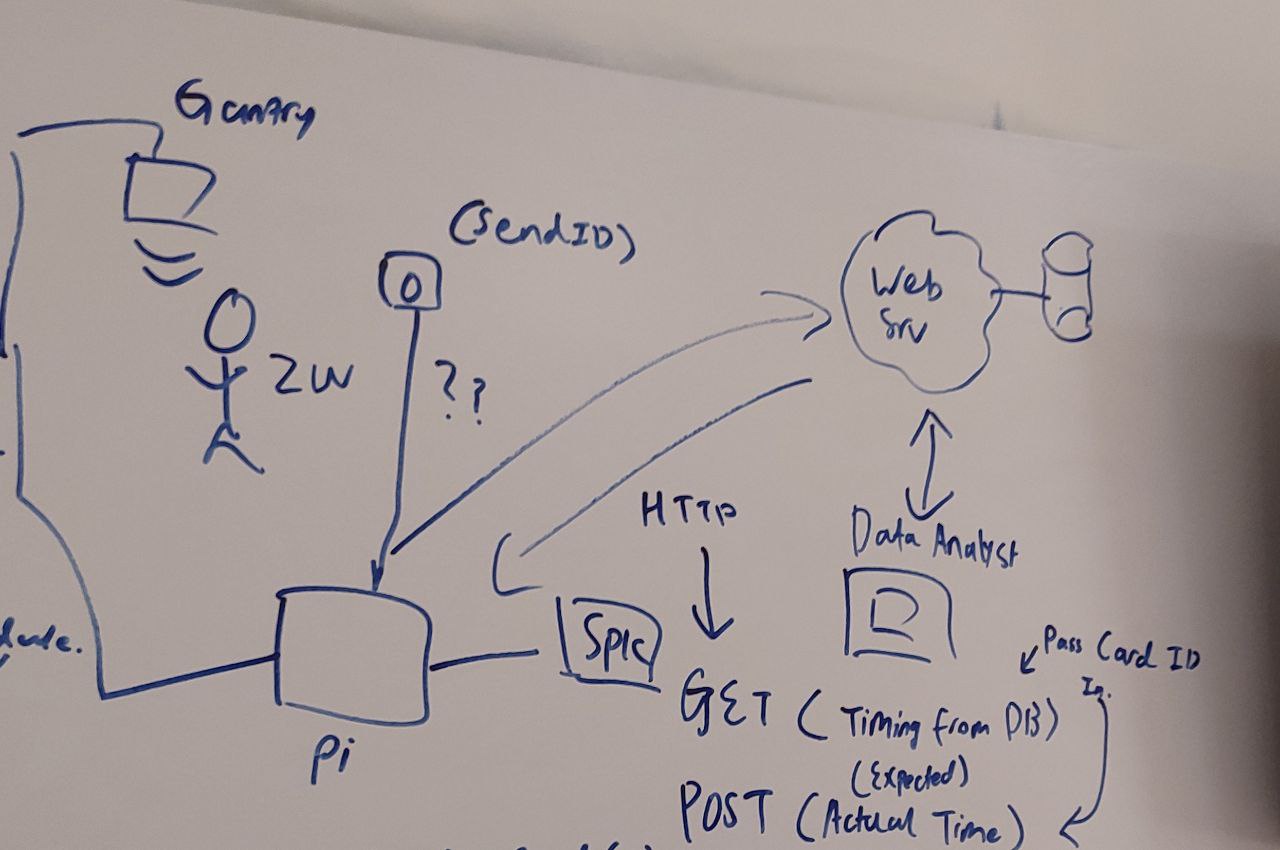 Gantry
(sendID)
Web
Srv
ZW
??
HTTP
Data Analyst
Spk
Pass Card ID
In.
GET (Timing from DB)
(Expected)
Pi
POST (Actual Time)